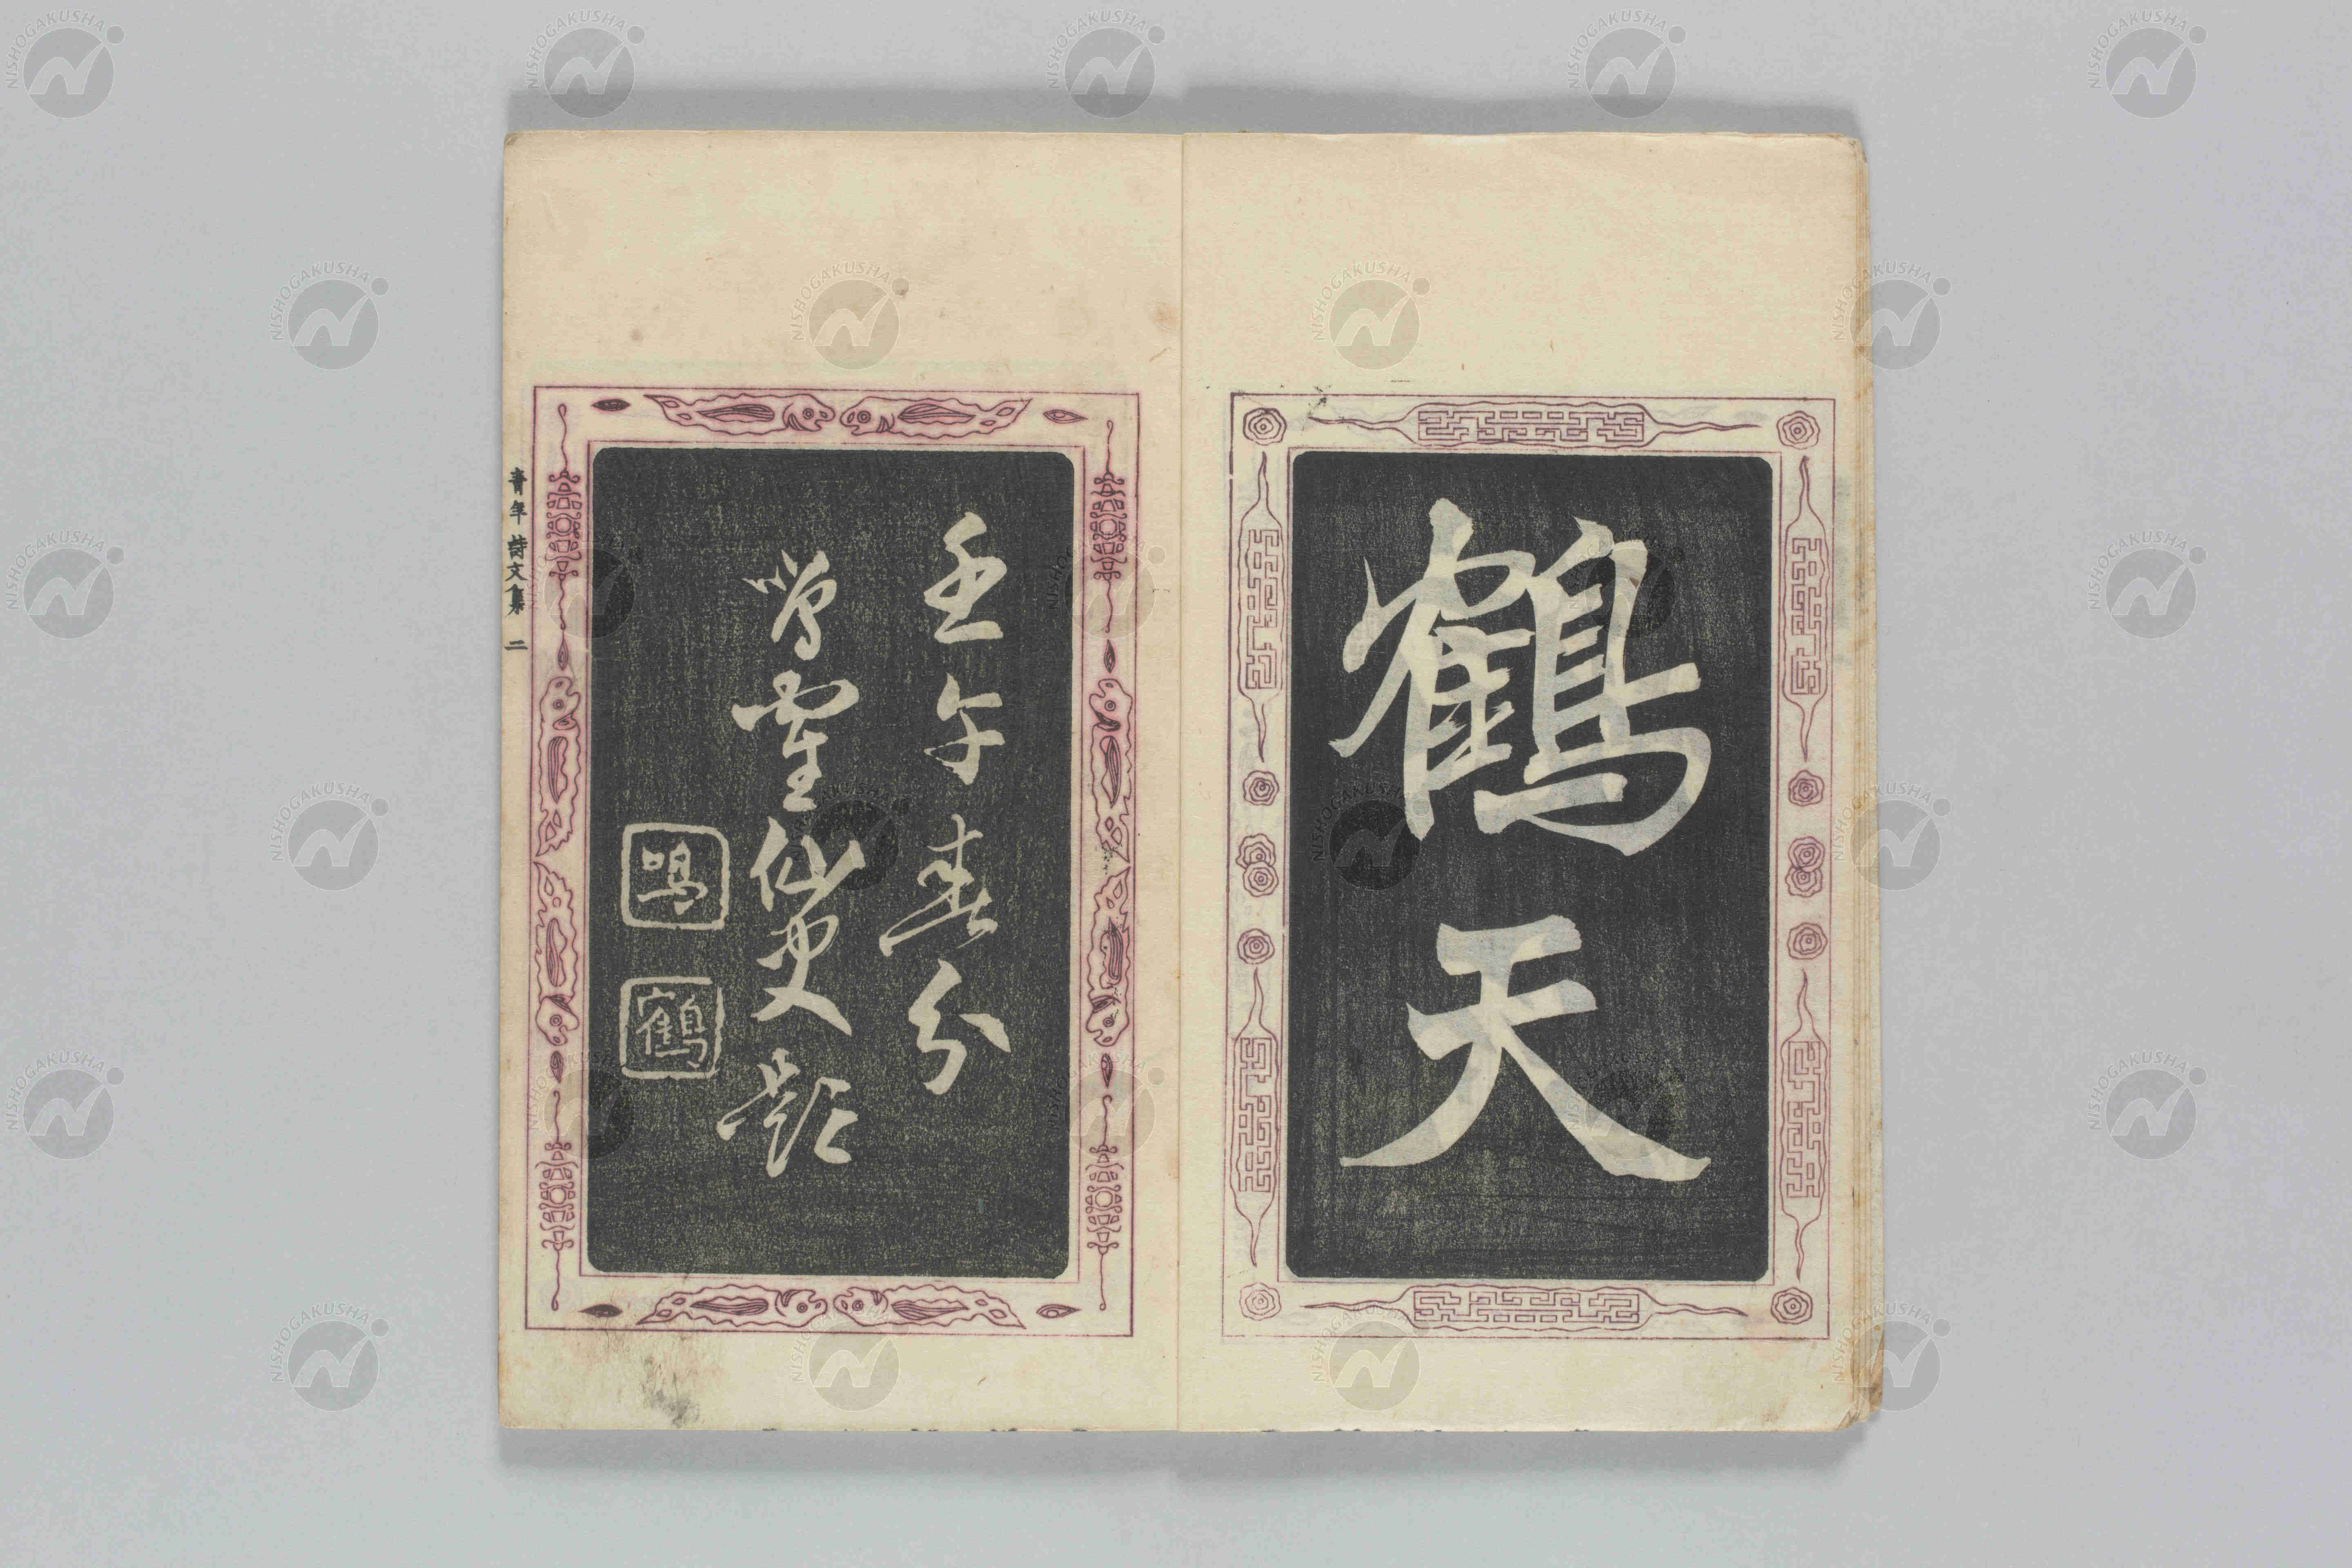 鶴天
壬午春分
鳴寉仙史題
鳴
鶴
青年詩文集 二
NISHOGAKUSHA